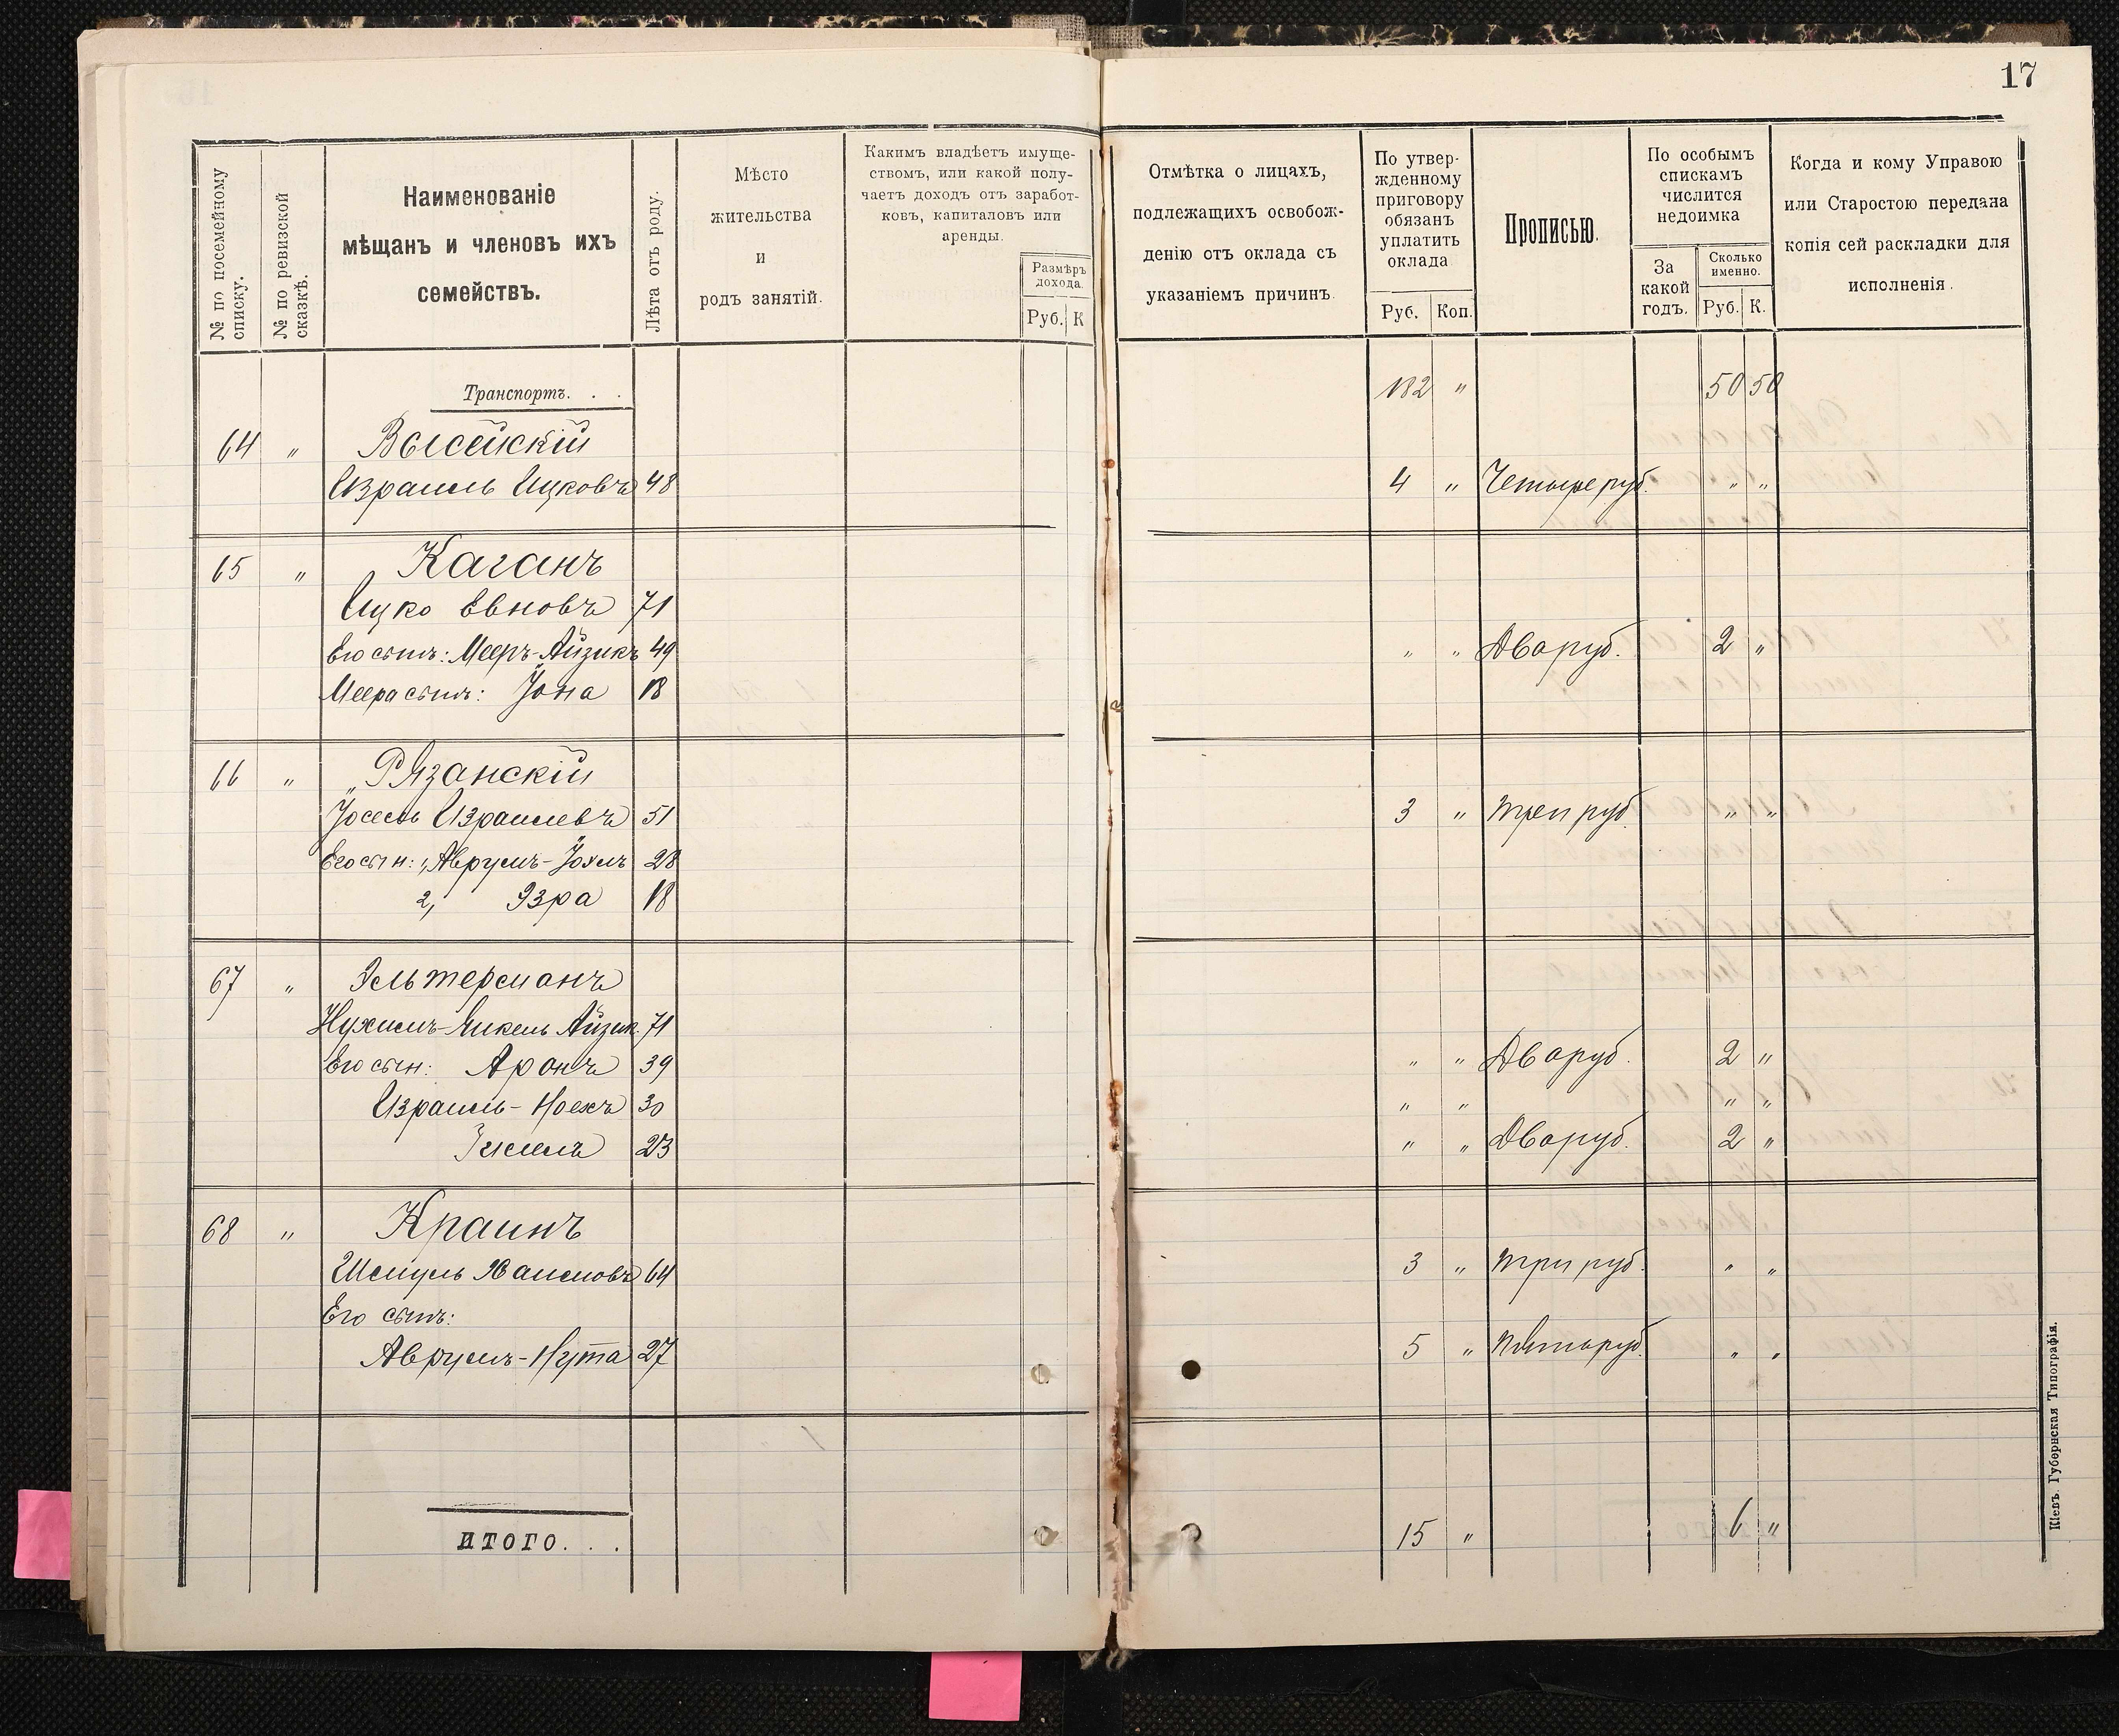 17
№ по посемейному списку.
№ по ревизской сказкѣ.
Наименованіе
мѣщанъ и членовъ ихъ
семействъ.
Лѣта отъ роду.
Мѣсто
жительства
и
родъ занятій.
Какимъ владѣетъ имуще-
ствомъ, или какой полу-
чаетъ доходъ отъ заработ-
ковъ, капиталовъ или
аренды.
Размѣръ
дохода.
Руб. К
Отмѣтка о лицахъ,
подлежащихъ освобож-
денію отъ оклада съ
указаніемъ причинъ.
По утвер-
жденному
приговору
обязанъ
уплатить
оклада
Руб. Коп.
Прописью.
По особымъ
спискамъ
числится
недоимка
За
какой
годъ.
Сколько
именно.
Руб. К.
Когда и кому Управою
или Старостою передана
копія сей раскладки для
исполненія.
Транспортъ. . . 182 " 50 50
64 "
Израиль Ицковъ 48 4 " Четыре руб. " "
65 " Каганъ
Ицко Евновъ 71
Его сынъ: Мееръ-Айзикъ 49 " " Два руб. 2 "
Меера сынъ: Іона 18
66 " Рязанскій
Іосель Израилевъ 51 3 " три руб. " "
Его сын: 1, Аврумъ-Іохлъ 28
2, Эзра 18
67 " Эльтерманъ
Нухимъ-Янкель Айзик. 71
Его сын: Аронъ 39 " " Два руб. 2 "
Израиль-Ноехъ 30 " " " "
23 " " Два руб. 2 "
68 " Краинъ
Шмуль Хаимовъ 64 3 " три руб. " "
Его сынъ:
Аврумъ-Нута 27 5 " пять руб. " "
ИТОГО. . . 15 " 6 "
Кіевъ. Губернская Типографія.